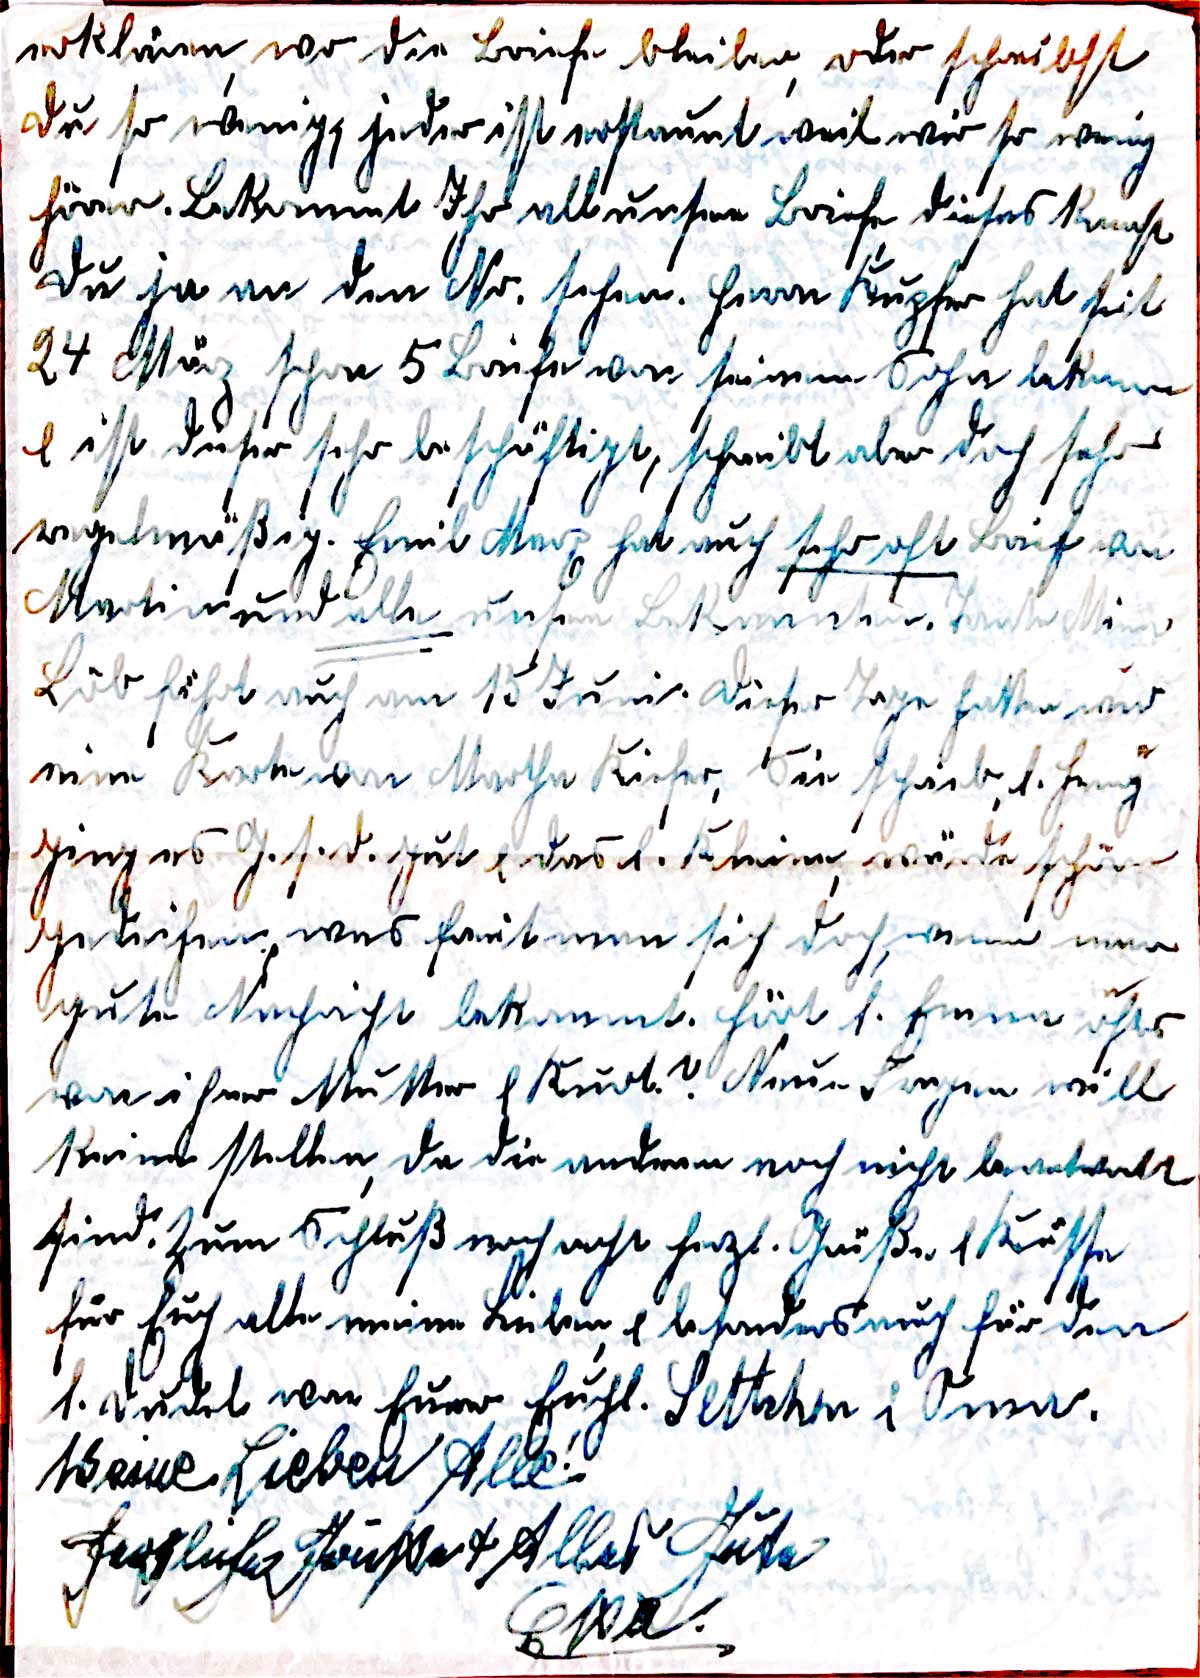 erklären, wo die Briefe bleiben, oder schreibst
Du so wenig, jeder ist erstaunt weil wir so wenig
hören. Bekommt Ihr all unsere Briefe, dieses kannst
Du ja an den Nr. sehen. Herrn Kupfer hat seit
24 März schon 5 Briefe von seinem Sohn bekommen
& ist dieser sehr beschäftigt, schreibt aber doch sehr
regelmäßig. Emil Marz hat auch sehr oft Brief von
Martin und alle unsere Bekannten. Tante Mina
Löb fährt auch am 15 Juni. Dieser Tage hatten wir
eine Karte von Martha Kiefer, Sie schrieb, l.
ging es G. s. d. gut & das l. Kleine, würde schön
gedeihen, was freut man sich doch, wenn man
gute Nachricht bekommt. Hört l. Emma öfters
von ihrer Mutter & Kurt? Neue Fragen will
keine stellen, da die anderen noch nicht beantwortet
sind. Zum Schluß noch recht herzl. Grüße & Küsse
für Euch alle meine Lieben, & besonders auch für den
l. von Eurer Euchl. &amp; Oma.
Meine Lieben Alle!
Herzliche Grüße & Alles Gute